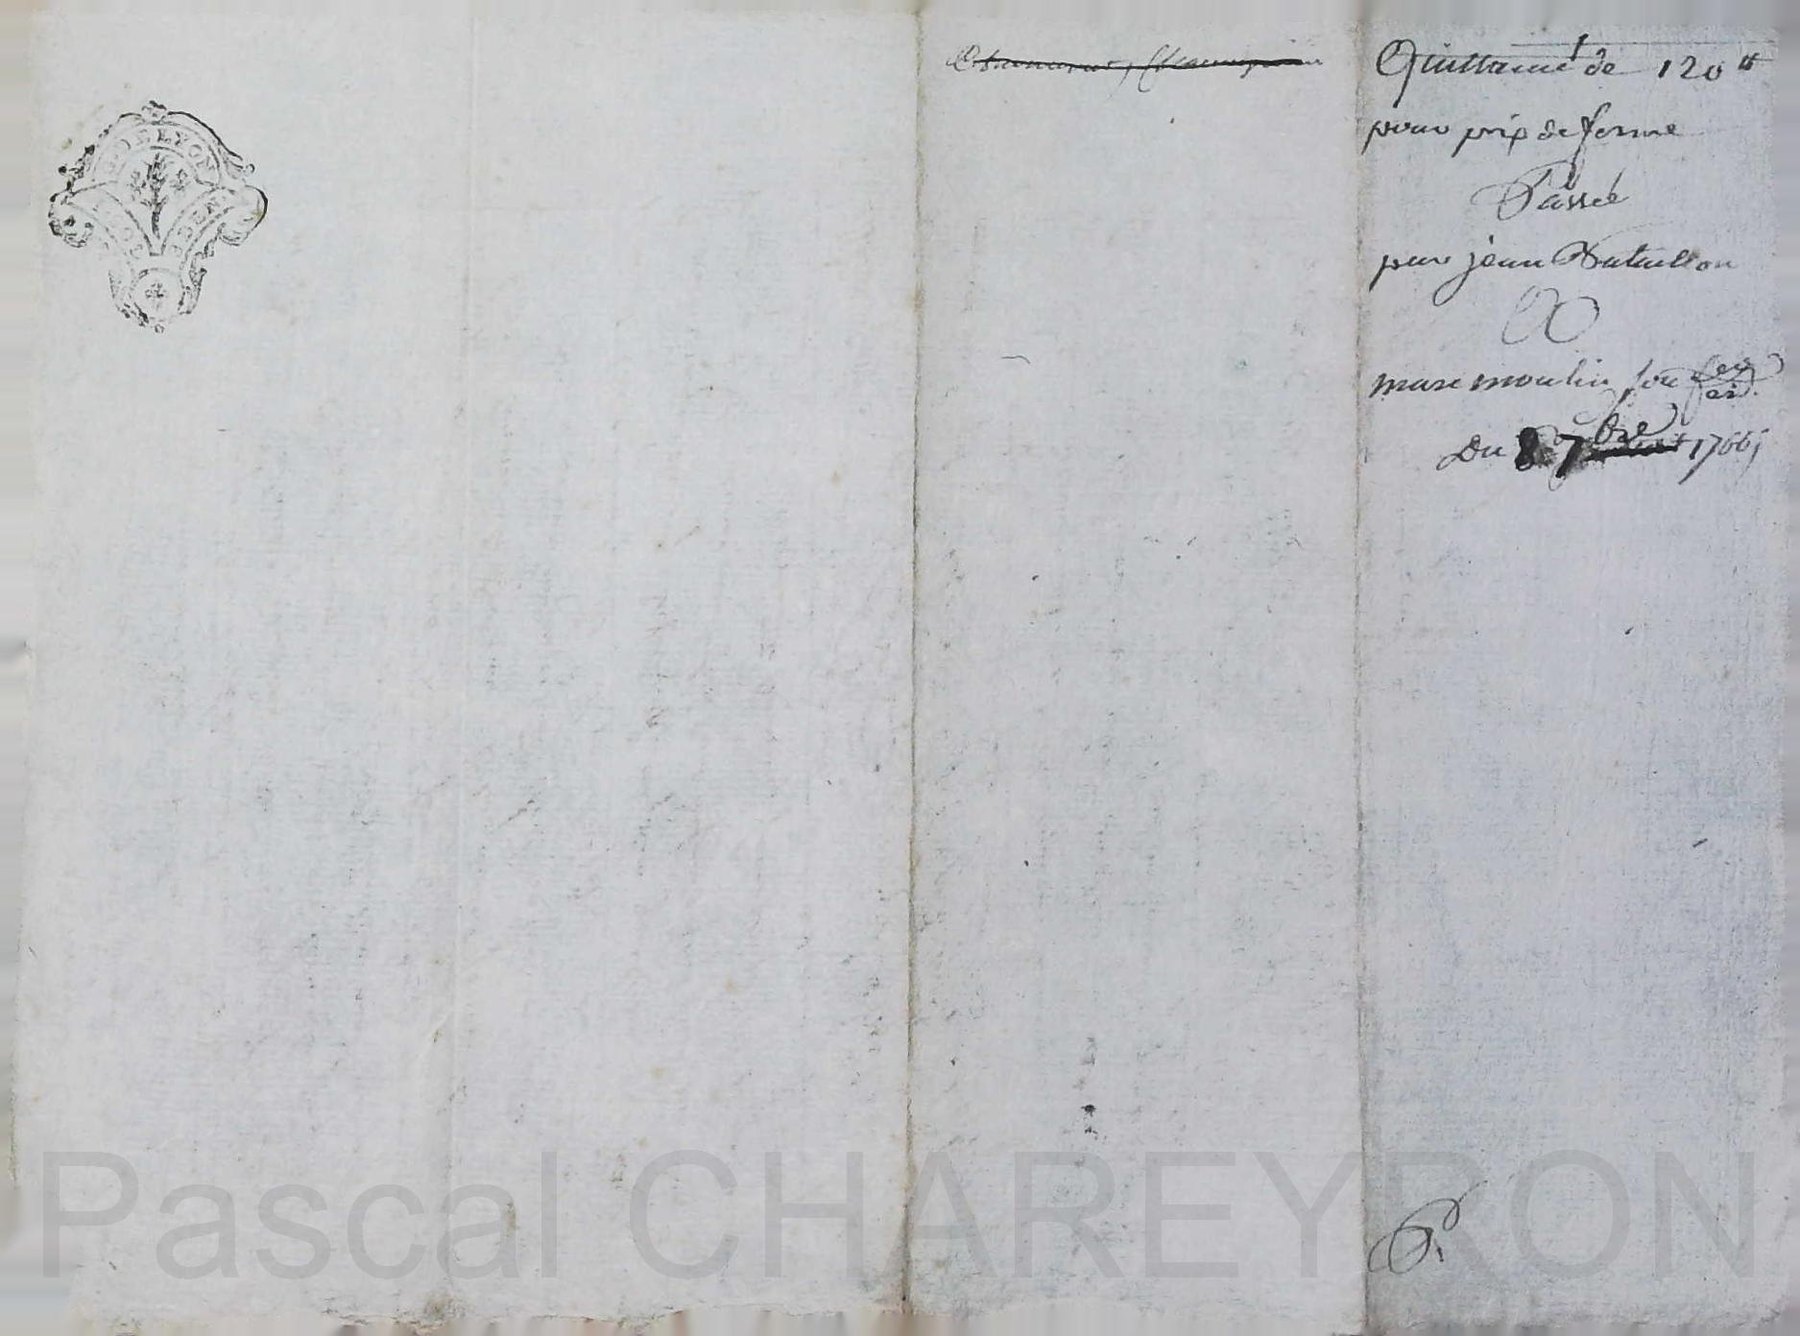 DE LYON
Quittance de 120 ₶
pour prix de ferme
Passée
par jean Bataillon
A
marc moulin son
Du 8 7bre 1766
P.
Pascal CHAREYRON